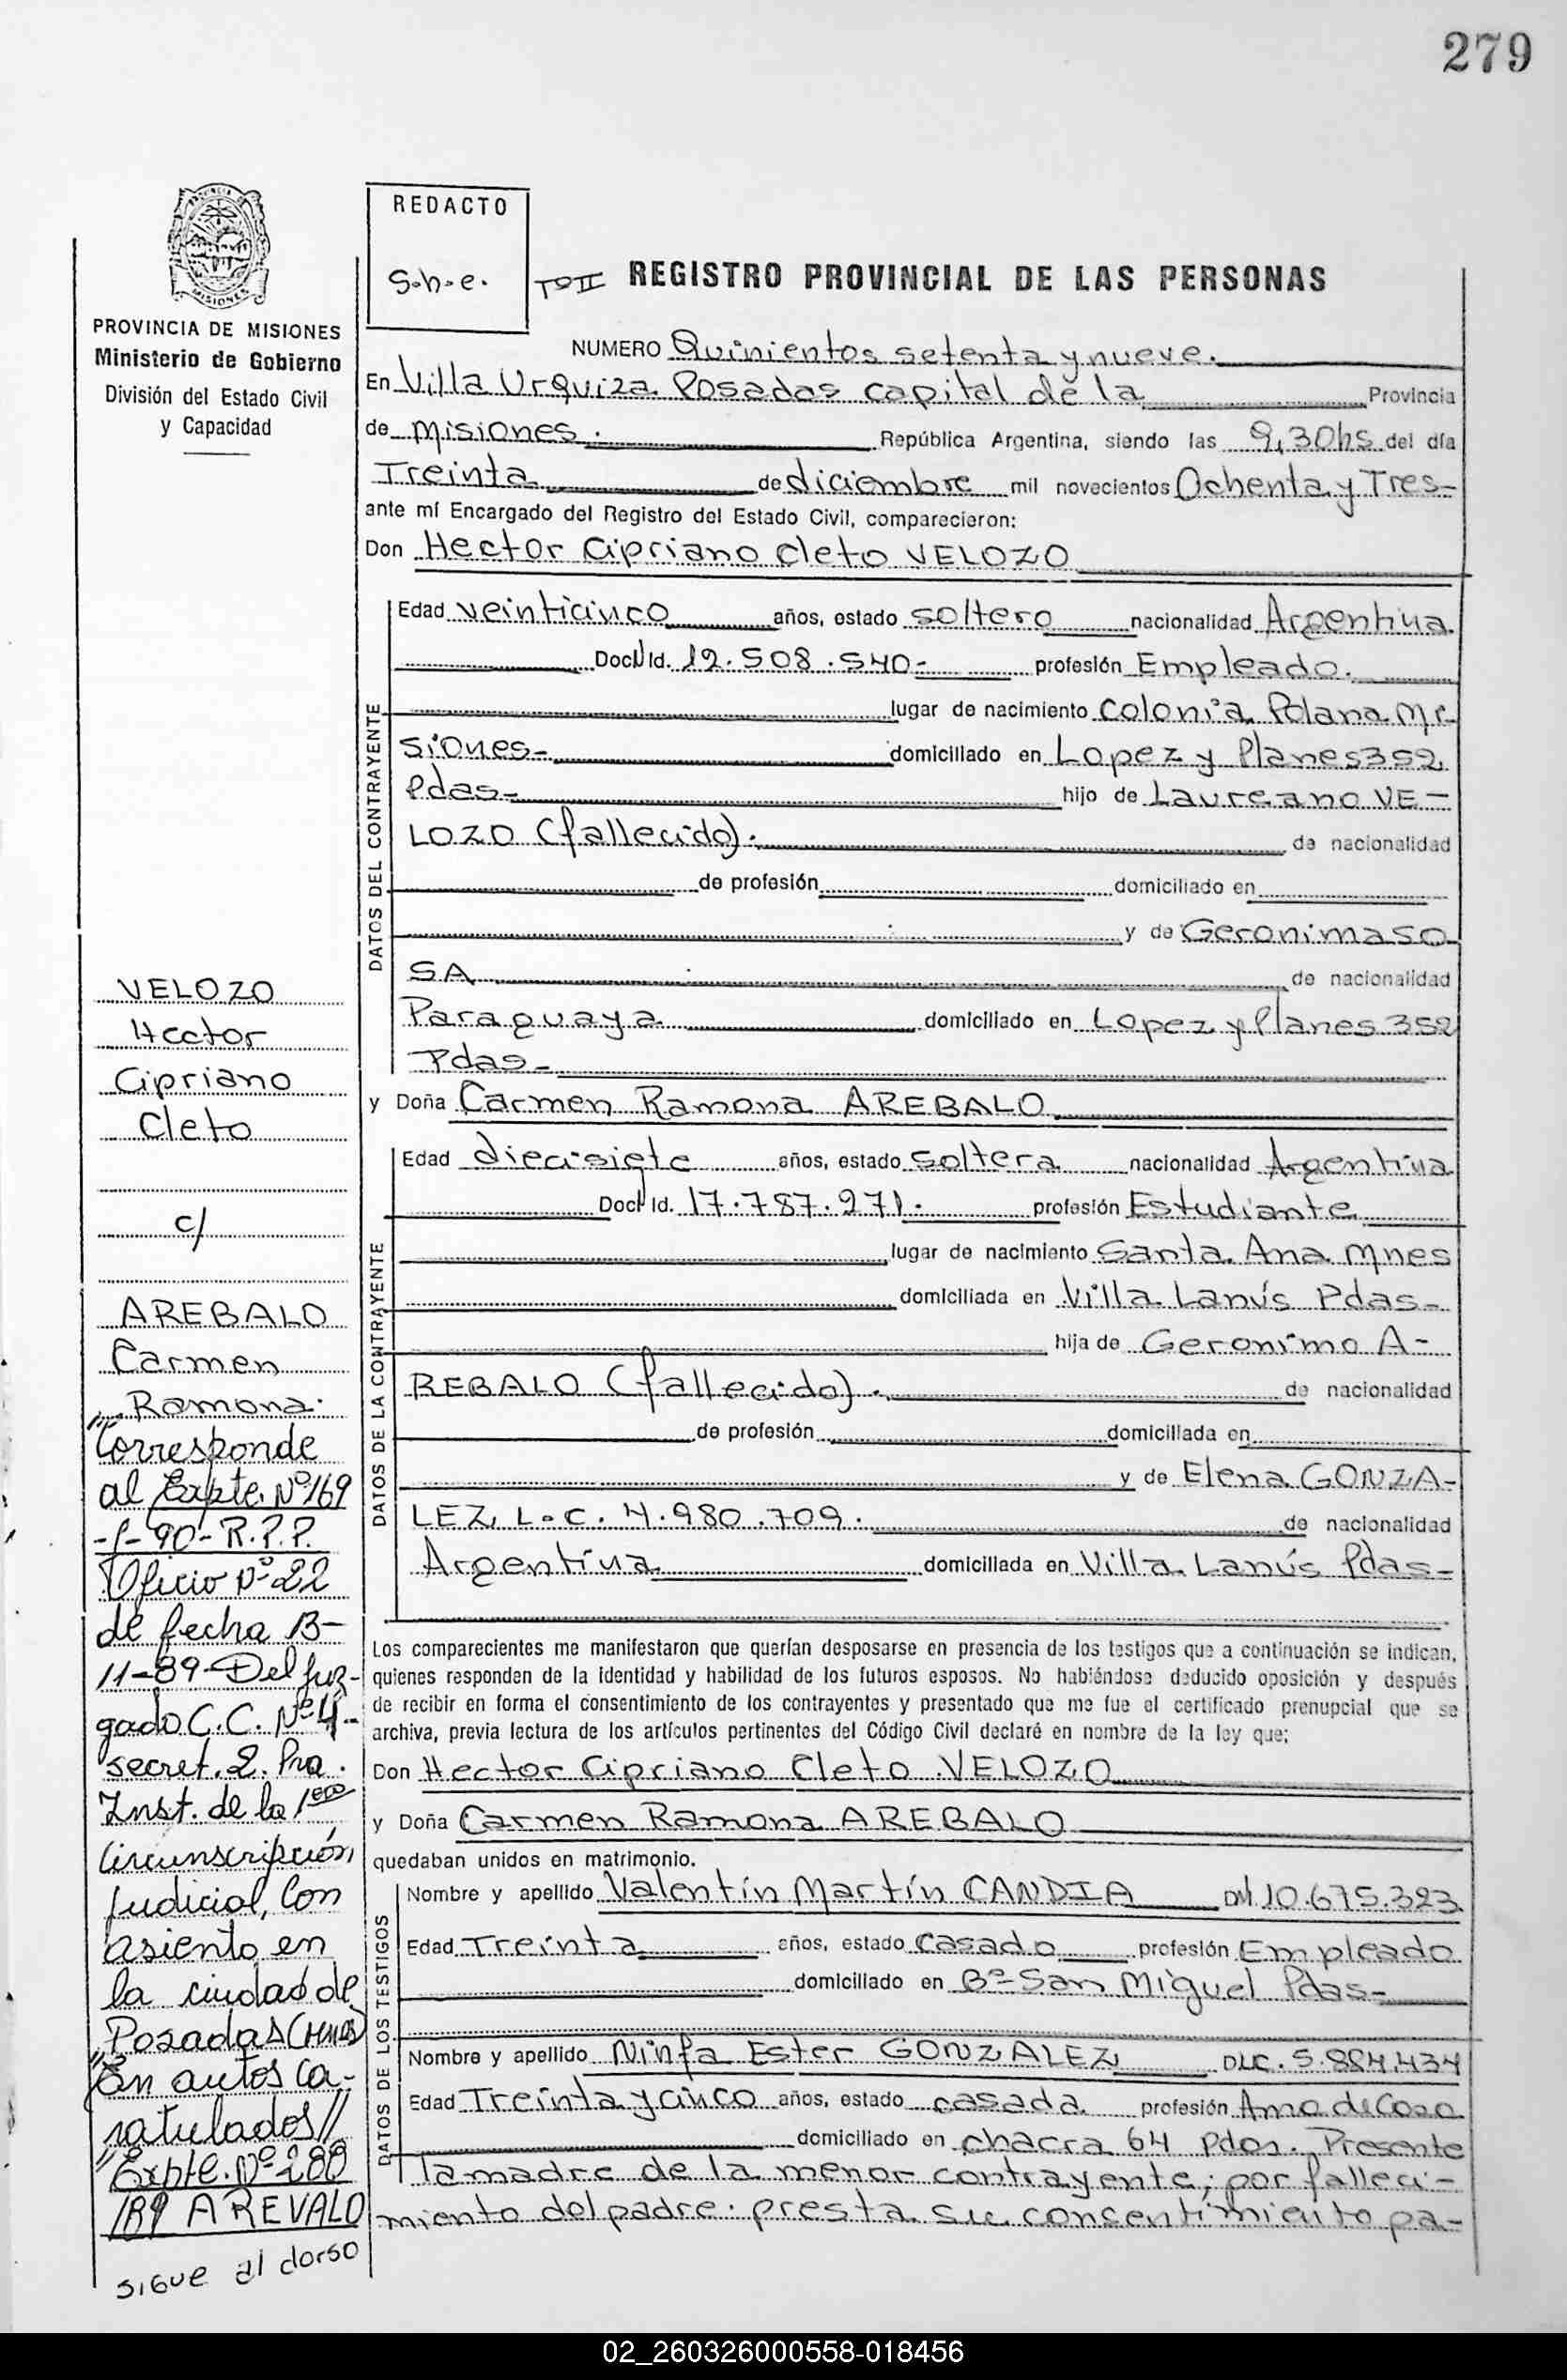 279
REDACTO
S.h.e.
Tº II REGISTRO PROVINCIAL DE LAS PERSONAS
PROVINCIA DE MISIONES
Ministerio de Gobierno
División del Estado Civil
y Capacidad
NUMERO Quinientos setenta y nueve.
En Villa Urquiza Posadas capital de la Provincia
de Misiones. República Argentina, siendo las 9,30hs del día
Treinta de diciembre mil novecientos Ochenta y Tres-
ante mí Encargado del Registro del Estado Civil, comparecieron:
Don Hector Cipriano Cleto VELOZO
DATOS DEL CONTRAYENTE
Edad veinticinco años, estado soltero nacionalidad Argentina
Doc. Id. 12.508.540- profesión Empleado.
lugar de nacimiento Colonia Polana Mi-
siones- domiciliado en Lopez y Planes 352,
Pdas- hijo de Laureano VE-
LOZO (fallecido). de nacionalidad
de profesión domiciliado en
y de Geronima SO
SA de nacionalidad
Paraguaya domiciliado en Lopez y Planes 352
Pdas-
y Doña Carmen Ramona AREBALO
DATOS DE LA CONTRAYENTE
Edad diecisiete años, estado soltera nacionalidad Argentina
Doc. Id. 17.787.271. profesión Estudiante
lugar de nacimiento Santa Ana Mnes
domiciliada en Villa Lanús Pdas-
hija de Geronimo A-
REBALO (fallecido). de nacionalidad
de profesión domiciliada en
y de Elena GONZA-
LEZ, L.C. 4.980.709. de nacionalidad
Argentina domiciliada en Villa Lanús Pdas-
Los comparecientes me manifestaron que querían desposarse en presencia de los testigos que a continuación se indican,
quienes responden de la identidad y habilidad de los futuros esposos. No habiéndose deducido oposición y después
de recibir en forma el consentimiento de los contrayentes y presentado que me fue el certificado prenupcial que se
archiva, previa lectura de los artículos pertinentes del Código Civil declaré en nombre de la ley que:
Don Hector Cipriano Cleto VELOZO
y Doña Carmen Ramona AREBALO
quedaban unidos en matrimonio.
DATOS DE LOS TESTIGOS
Nombre y apellido Valentín Martín CANDIA 10.675.323
Edad Treinta años, estado casado profesión Empleado
domiciliado en Bº San Miguel Pdas-
Nombre y apellido Ninfa Ester GONZALEZ D.LC. 5.884.434
Edad Treinta y cinco años, estado casada profesión Ama de Casa
domiciliado en chacra 64 Pdas. Presente
la madre de la menor contrayente; por falleci-
miento del padre. presta su consentimiento pa-
VELOZO
Hector
Cipriano
Cleto
c/
AREBALO
Carmen
Ramona.
"Corresponde
al Expte. Nº 169
-1-90- R.P.P.
Oficio Nº 22
de fecha 13-
11-89- Del Juz-
gado C.C. Nº 4-
secret. 2. Pra.
Inst. de la 1era
Circunscripción
Judicial, Con
asiento en
la ciudad de
Posadas (Mnes)
"En autos ca-
ratulados//
"Expte. Nº 280
/89 AREVALO
SIGUE al dorso
02_260326000558-018456